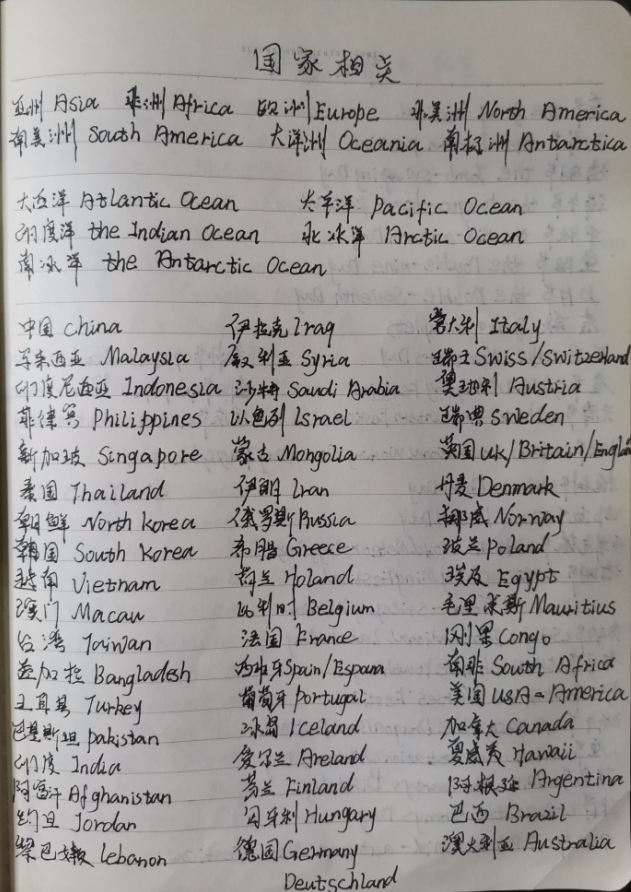 国家相关
亚洲 Asia 非洲 Africa 欧洲 Europe 北美洲 North America
南美洲 South America 大洋洲 Oceania 南极洲 Antarctica
大西洋 Atlantic Ocean 太平洋 Pacific Ocean
印度洋 the Indian Ocean 北冰洋 Arctic Ocean
南冰洋 the Antarctic Ocean
中国 China 伊拉克 Iraq 意大利 Italy
马来西亚 Malaysia 叙利亚 Syria 瑞士 Swiss/Switzerland
印度尼西亚 Indonesia 沙特 Saudi Arabia 奥地利 Austria
菲律宾 Philippines 以色列 Israel 瑞典 Sweden
新加坡 Singapore 蒙古 Mongolia 英国 UK/Britain/Englan
泰国 Thailand 伊朗 Iran 丹麦 Denmark
朝鲜 North Korea 俄罗斯 Russia 挪威 Norway
韩国 South Korea 希腊 Greece 波兰 Poland
越南 Vietnam 荷兰 Holand 埃及 Egypt
澳门 Macau 比利时 Belgium 毛里求斯 Mauritius
台湾 Taiwan 法国 France 刚果 Congo
孟加拉 Bangladesh 西班牙 Spain/Espana 南非 South Africa
土耳其 Turkey 葡萄牙 Portugal 美国 USA-America
巴基斯坦 Pakistan 冰岛 Iceland 加拿大 Canada
印度 India 爱尔兰 Areland 夏威夷 Hawaii
阿富汗 Afghanistan 芬兰 Finland 阿根廷 Argentina
约旦 Jordan 匈牙利 Hungary 巴西 Brazil
黎巴嫩 Lebanon 德国 Germany 澳大利亚 Australia
Deutschland